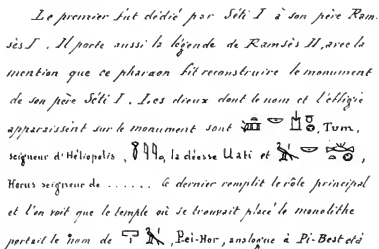 Le premier fut dédié par Séti I à son père Ram-
sès I. Il porte aussi la légende de Ramsès II, avec la
mention que ce pharaon fit reconstruire le monument
de son père Séti I. Les dieux dont le nom et l'effigie
apparaissent sur le monument sont , Tum,
seigneur d'Héliopolis, , la déesse Uati et ,
Horus seigneur de ...... Ce dernier remplit le rôle principal
et l'on voit que le temple où se trouvait placé le monolithe
portait le nom de , Pei-Hor, analogue à Pi-Bast et à